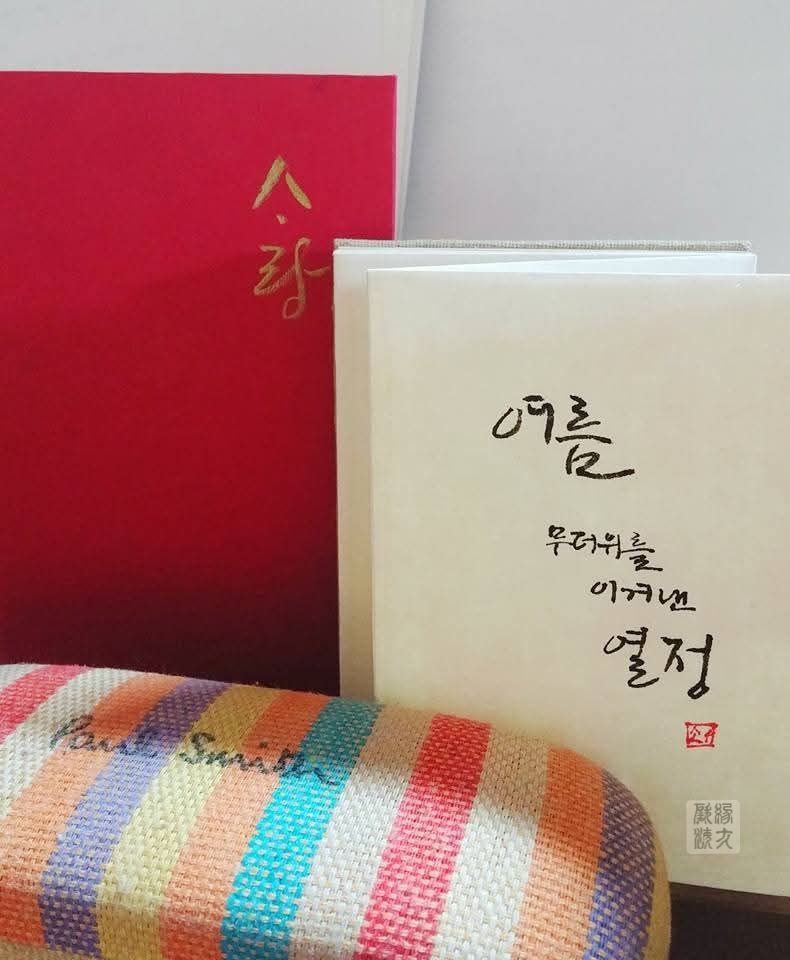 사랑
여름
무더위를
이겨낸
열정
Paul Smith